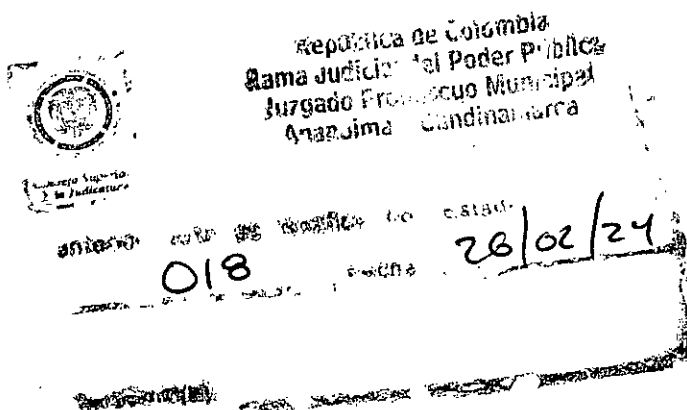 República de Colombia
Rama Judicial del Poder Público
Juzgado Promiscuo Municipal
Anapoima Cundinamarca
Consejo Superior
de la Judicatura
anterior auto se notifica
018 Fecha 26/02/24